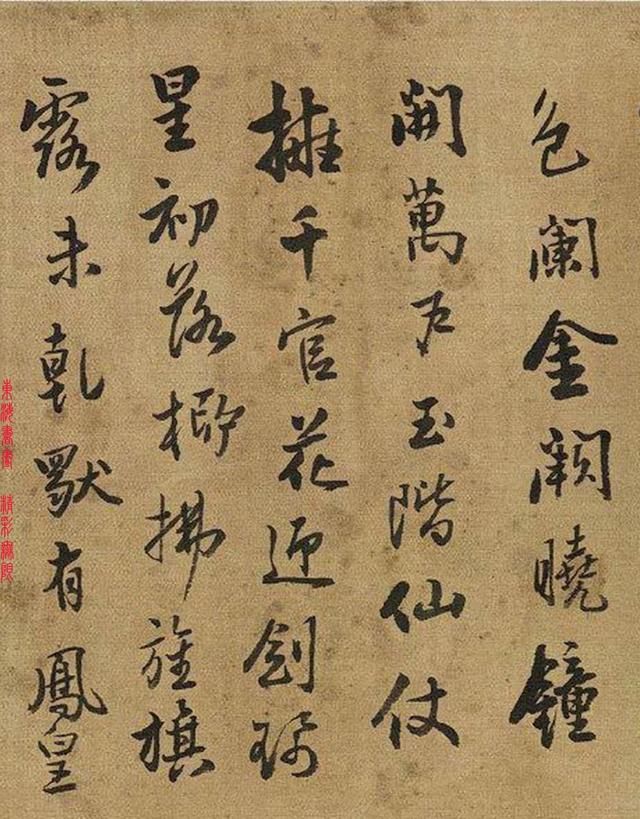 色闌金闕曉鐘
開萬戶玉階仙仗
擁千官花迎劍珮
星初落柳拂旌旗
露未乾獨有鳳皇
書畫 精彩無限